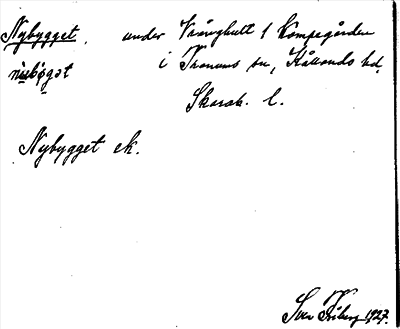 Nybygget. under Vrånghult 1 Kompegården
nẏbøgət i Tranums sn, Kållands hd,
Skarab. l.
Nybygget ek.
Sven Friberg 1927.